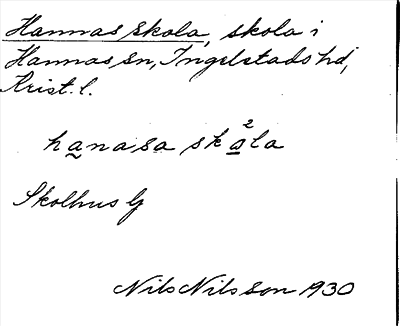 Hannas skola, skola i
Hannas sn, Ingelstads hd,
Krist. l.
hanasa skola
2
Skolhus
Nils Nilsson 1930